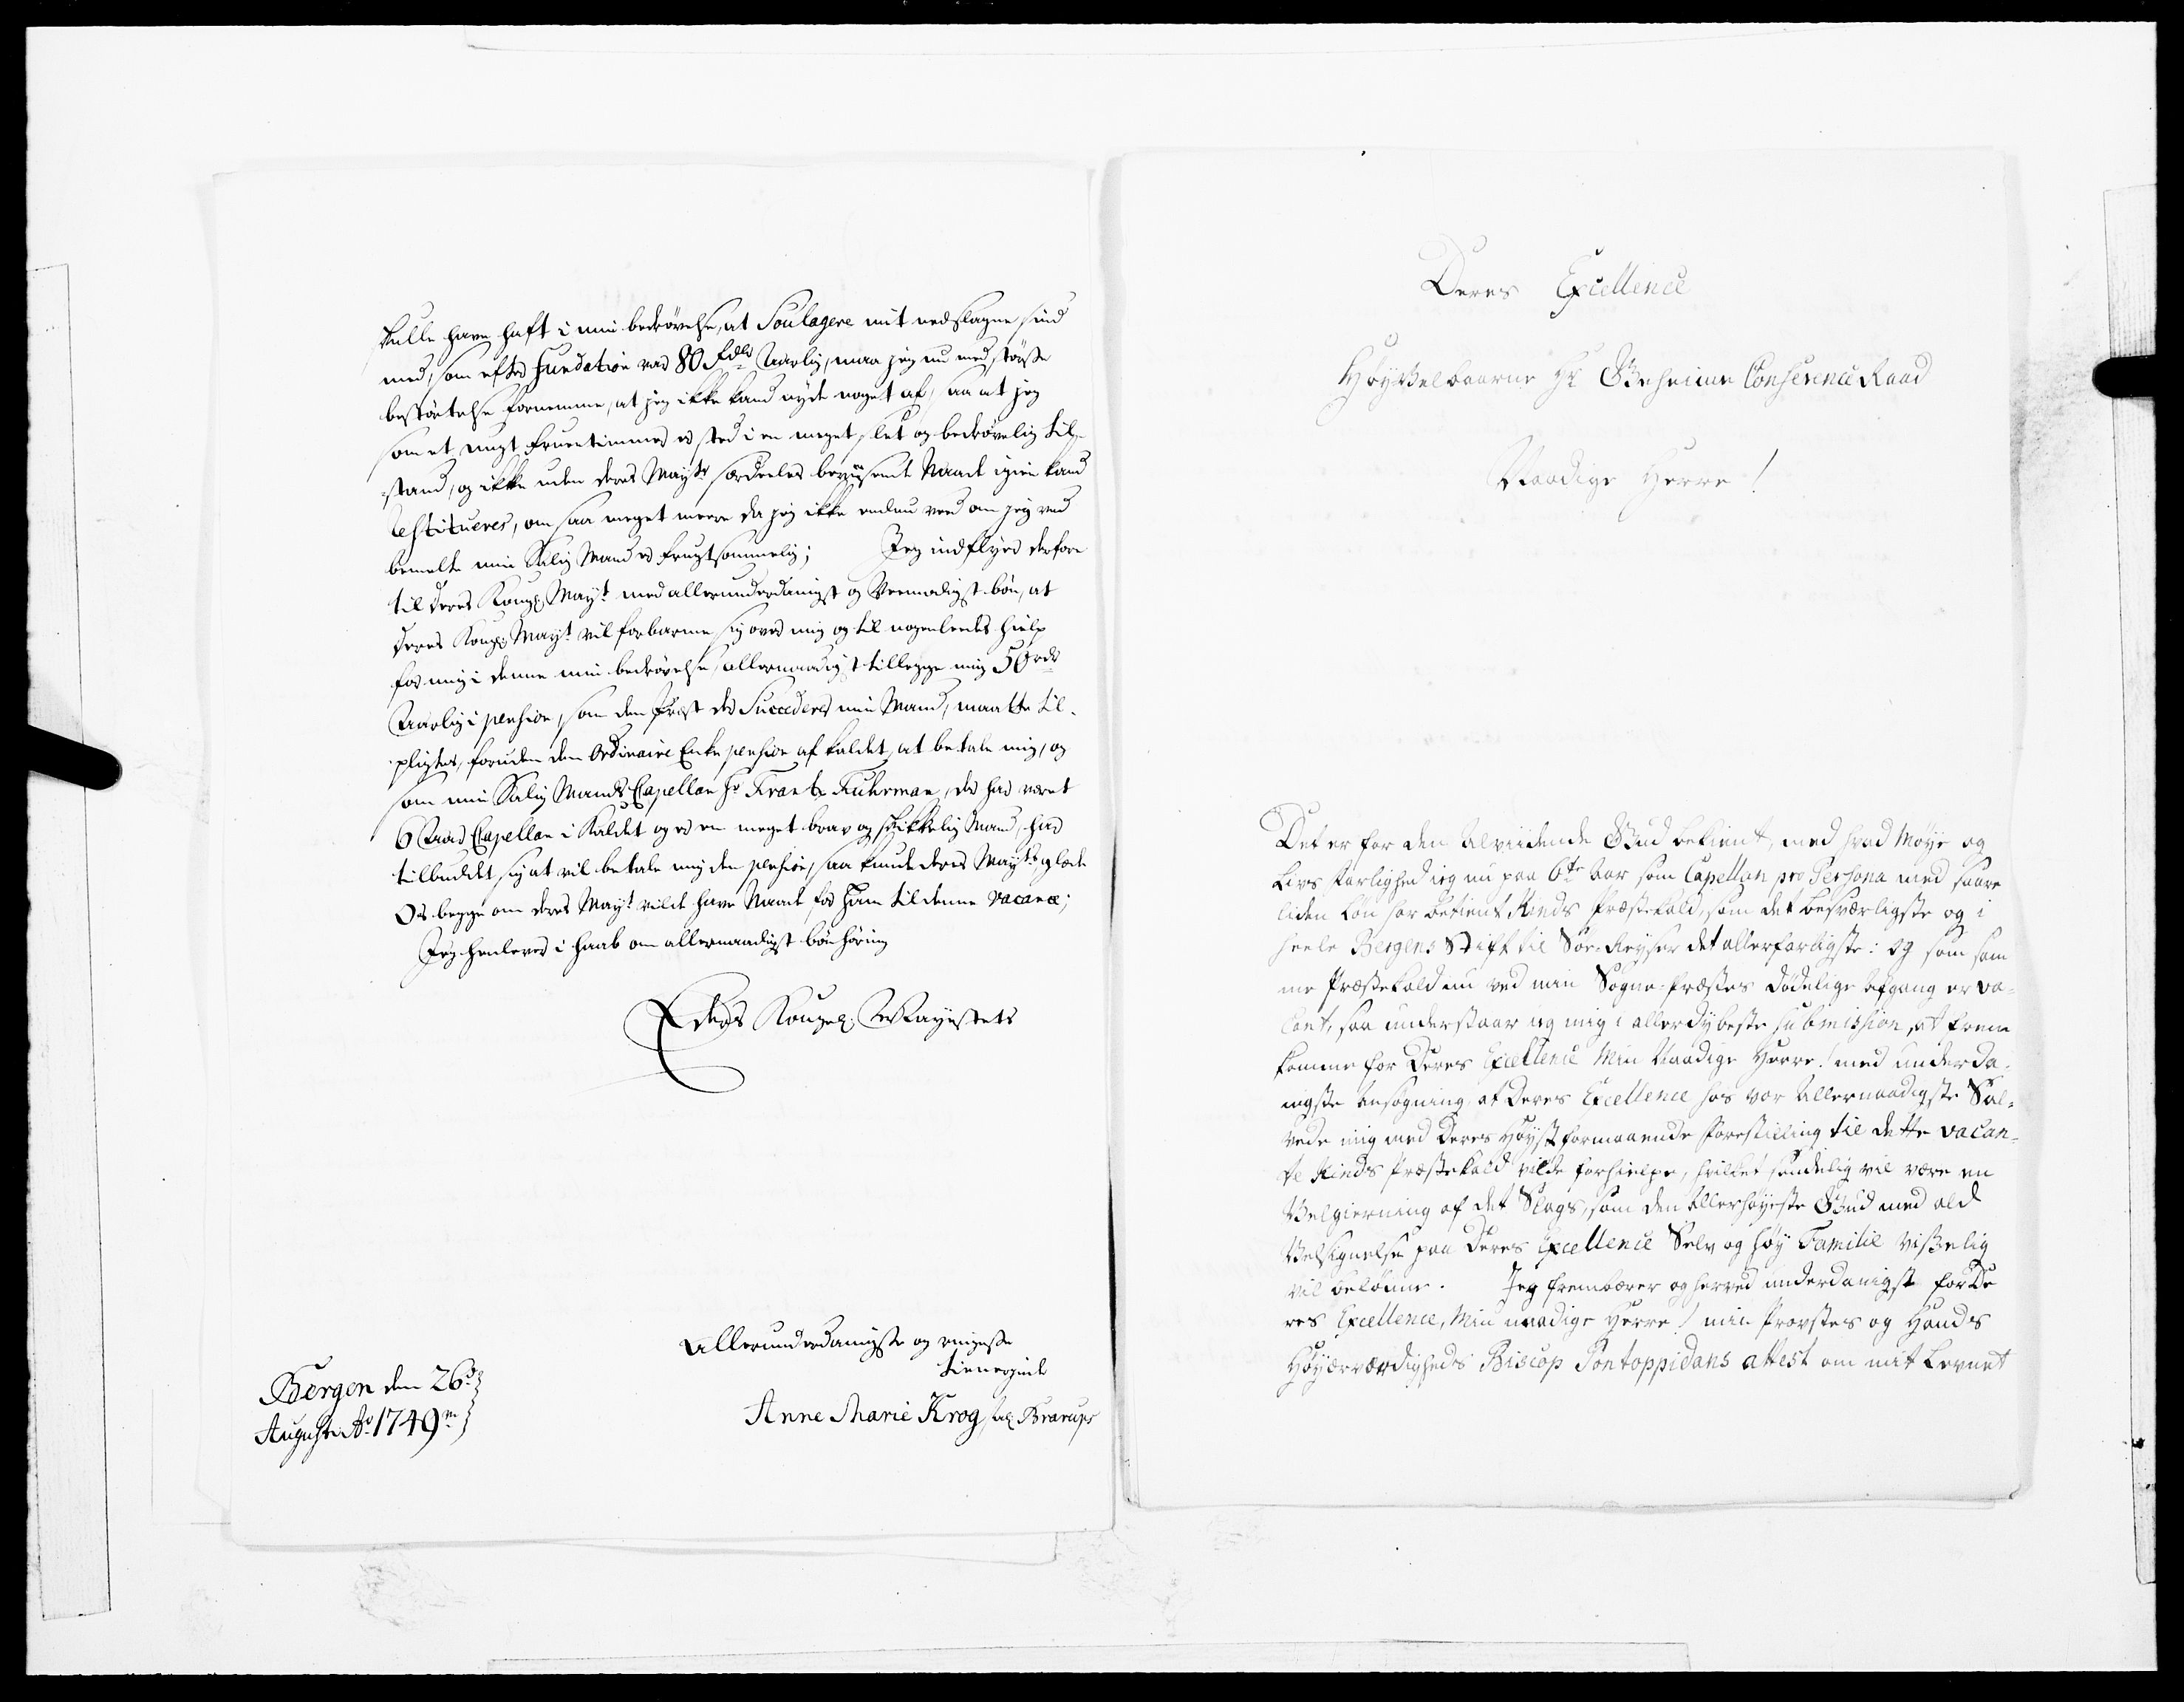 skulle have haft i min bedrøvelse, at Soulagere mit nedslagne sind
med, som efter Fundation var 80 Rdlr Aarlig, maa jeg nu med største
bestørtelse fornemme, at jeg ikke kand nyde noget af, saa at jeg
som et ungt Fruentimmer er sted i en meget slet og bedrøvelig til¬
stand, og ikke uden deres Mayts særdeeles beviisende Naade igien kand
restitueres, om saa meget meere da jeg ikke endnu veed om jeg ved
bemelte min Salig Mand er frugtsommelig; Jeg indflyer derfore
til deres Kongl. Mayt med allerunderdanigst og Veemodigst bøn, at
deres Kongl. Mayt vil forbarme sig over mig og til nogenleedes hielp
for mig i denne min bedrøvelse allernaadigst tillegge mig 50 rdr
Aarlig i pension, som den Præst der Succederer min Mand, maatte til¬
pligtes, foruden den Ordinaire Enke pension af kaldet, at betale mig, og
som min Salig Mands Capellan Hr Frantz Fuhrman, der har været
6 Aar Capellan i Kaldet og er en meget brav og skikkelig Mand, har
tilbudet sig at vil betale mig den pension, saa kunde deres Mayts glæde
Os begge om deres Mayt vilde have Naade for Ham til denne vacance;
Jeg henlever i Haab om allernaadigst bønhøring
Eders Kongel. Mayestets
Allerunderdanigste og ringeste
tienerinde
Anne Marie Krog, sal. Brarups
Bergen den 26d
Augusti Ao 1749m
Deres Excellence
HøyVelbaarne Hr Geheime Conference Raad
Naadige Herre!
Det er for den Alviidende Gud bekient, med hvad Møye og
Livs farlighed ieg nu paa 6te Aar som Capellan pro Persona med saare
liden Løn har betient Kinds Præstekald, som det besværligste og i
heele Bergens Stift til Søe-Reyser det allerfarligste: og som sam¬
me Præstekald nu ved min Sogne-Præstes dødelige afgang er va¬
cant, saa understaar ieg mig i allerdybeste submission, at frem¬
komme for Deres Excellence Min Naadige Herre! med underda¬
nigste Ansøgning, at Deres Excellence hos vor Allernaadigste Sal¬
vede mig med Deres Høyst formaaende Forestilling til dette vacan¬
te Kinds Præstekald vilde forhielpe, hvilket sandelig vil være en
Velgierning af det Slags, som den Allerhøyeste Gud med ald
Velsignelse paa Deres Excellence Selv og høy Familie visselig
vil belønne. Jeg frembærer og herved underdanigst for De
res Excellence, Min naadige Herre! min Provstes og Hands
Høyærværdigheds Biscop Pontoppidans attest om mit Levnet